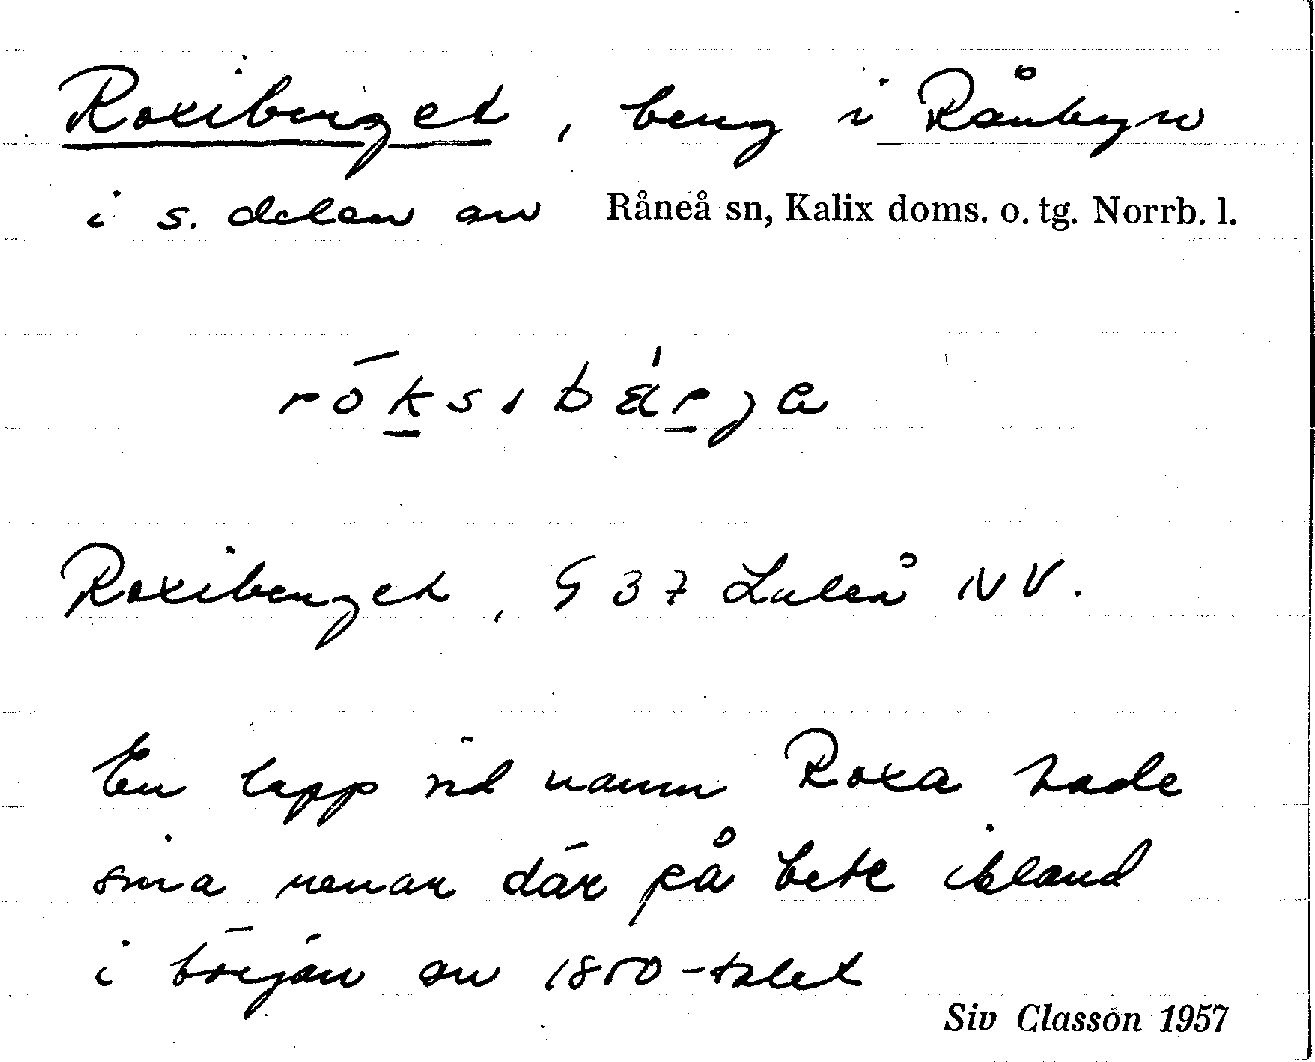 Roxiberget, berg i Rånbyn
i s. delen av Råneå sn, Kalix doms. o. tg. Norrb. l.
Roxiberget, § 37 Luleå NV.
En lapp vid namn Roxa hade
sina renar där på bete ibland
i början av 1800-talet
Siv Classon 1957